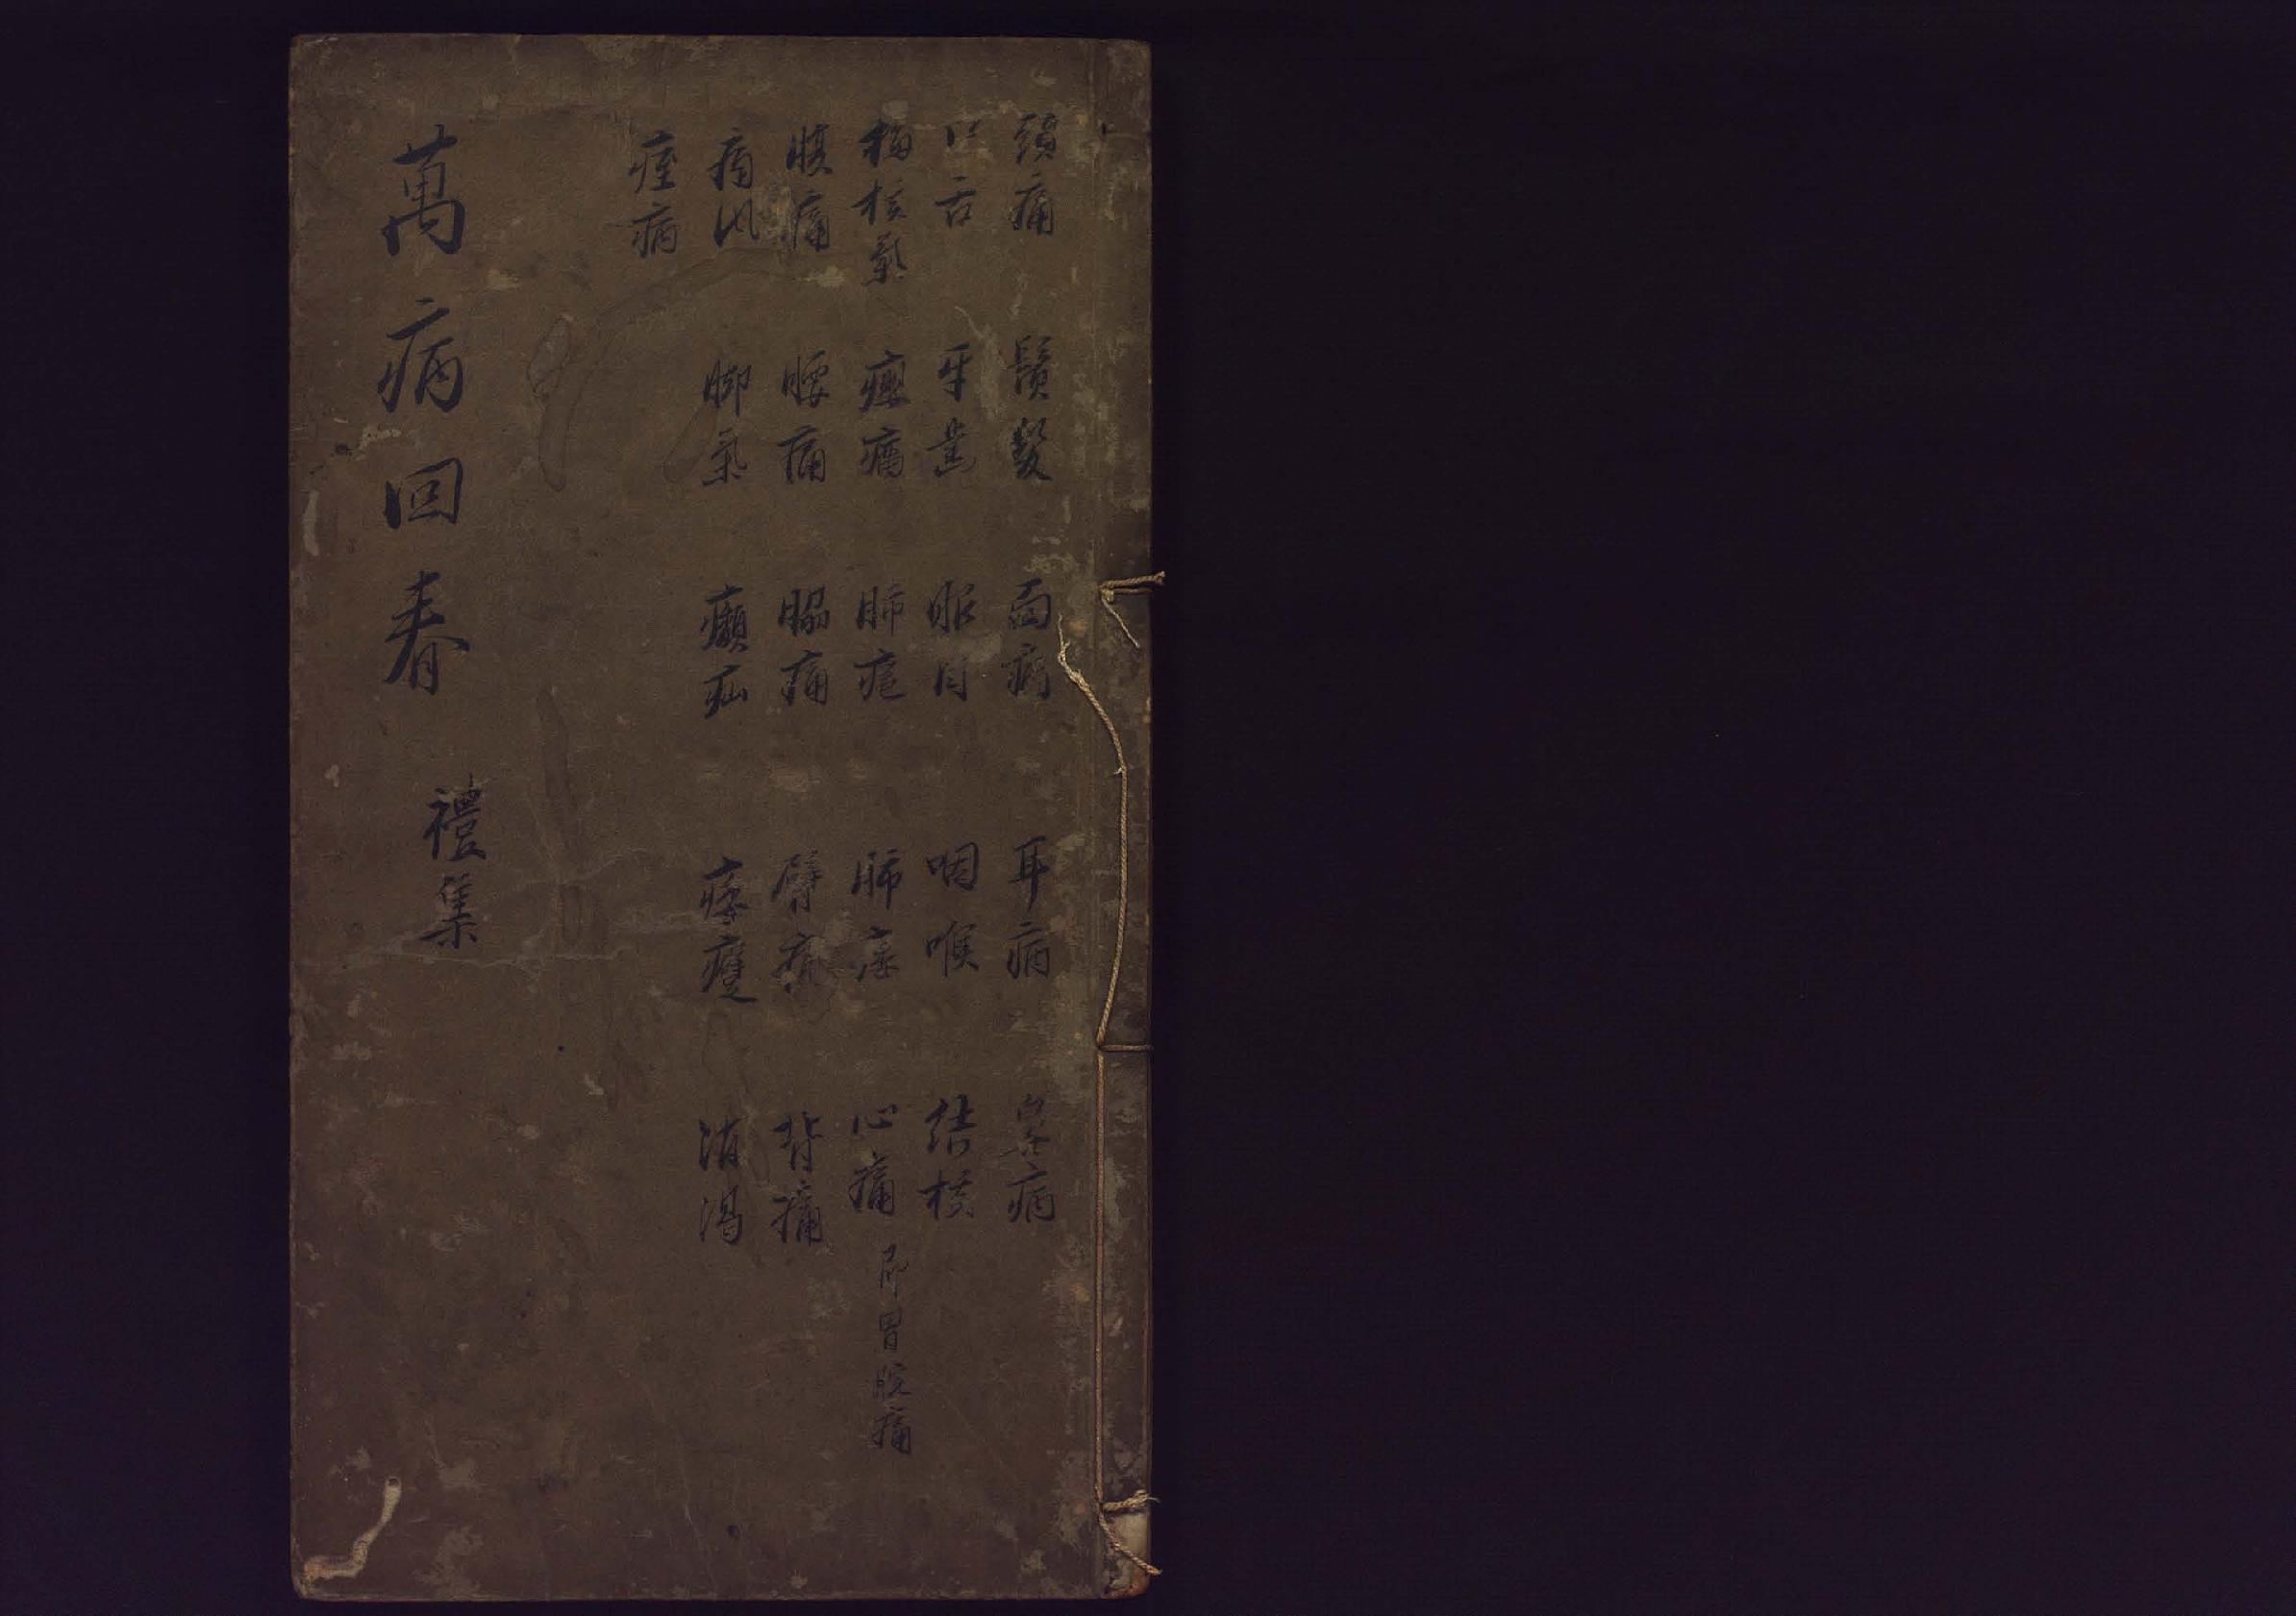 頭痛 鬚髮 面病 耳病 鼻病
口舌 牙齒 眼目 咽喉 結核
梅核氣 癭瘤 肺癰 肺痿 心痛 即胃脘痛
腹痛 腰痛 脇痛 臂痛 背痛
痛風 脚氣 癩疝 痿躄 消渴
痓病
萬病回春 禮集